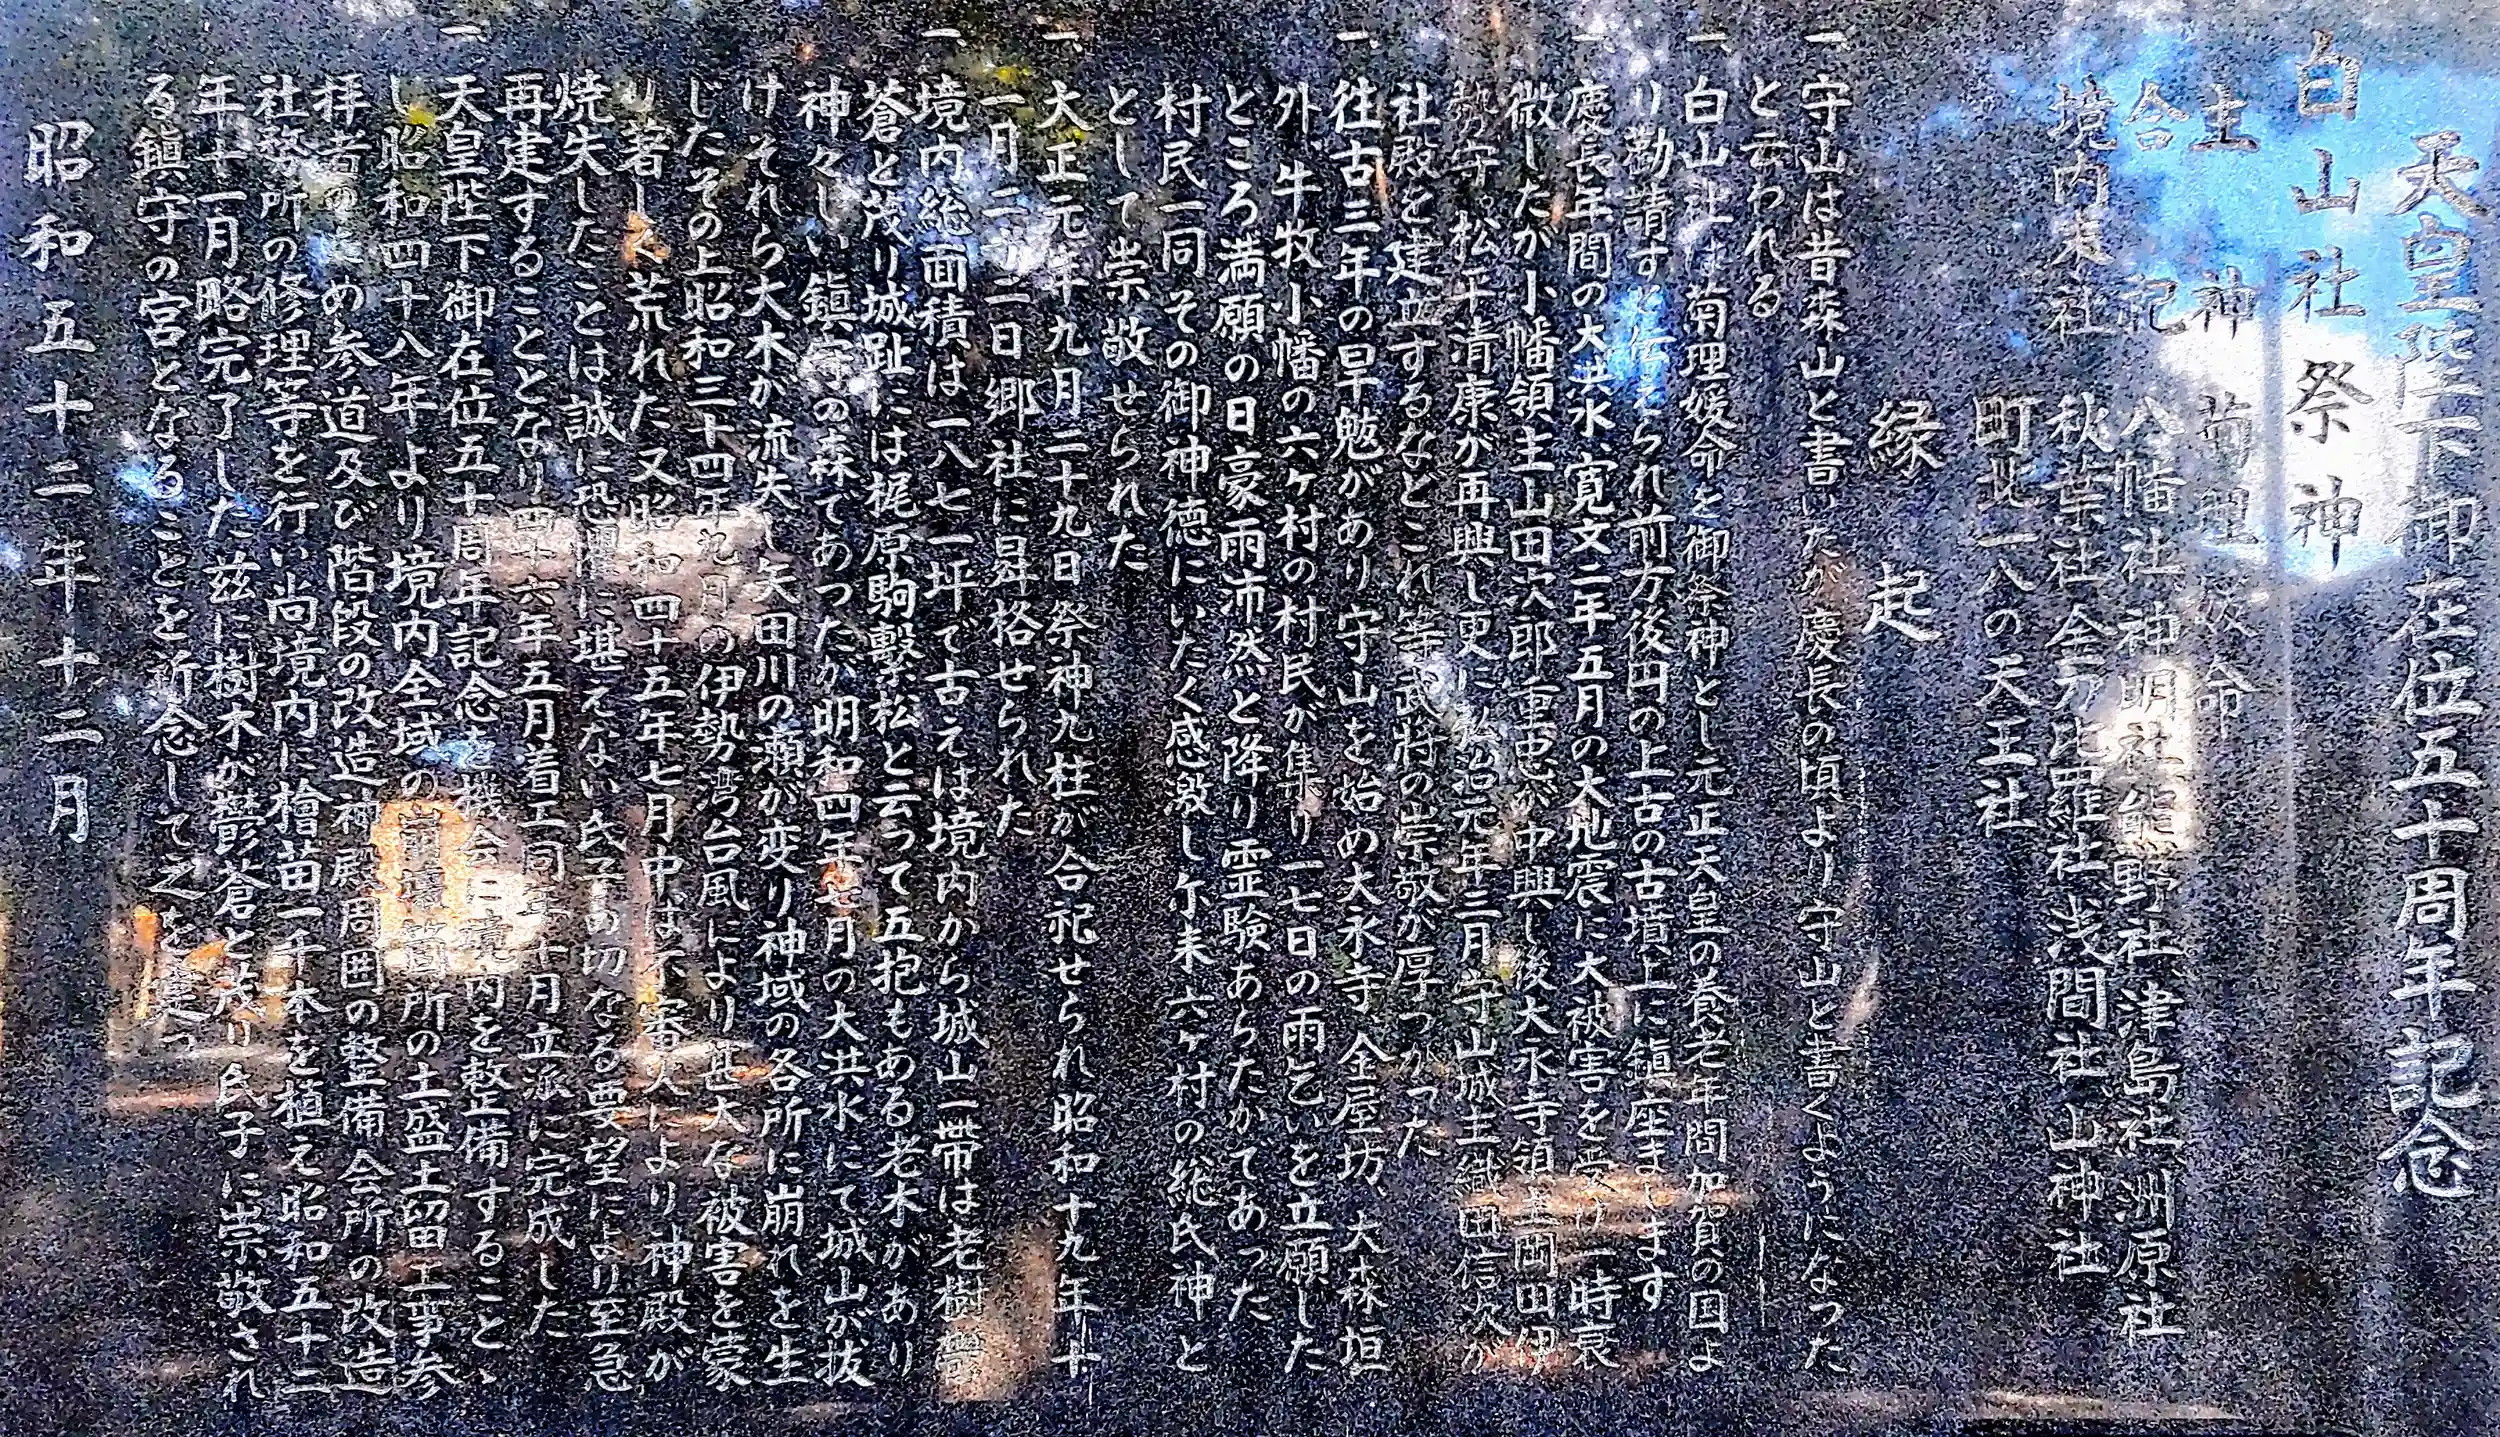 天皇陛下御在位五十周年記念
白山社祭神
主神 菊理媛命
合記 八幡社神明社熊野社津島社洲原社
境内末社 秋葉社金刀比羅社浅間社山神社
町北一八の天王社
縁起
一、守山は昔森山と書いたが慶長の頃より守山と書くようになつた
と云われる
一、白山社は菊理媛命を御祭神とし元正天皇の養老年間加賀の国よ
り勧請すと伝えられ前方後円の上古の古墳上に鎮座まします
一、慶長年間の大洪水寛文二年五月の大地震に大被害を受け一時衰
微したが小幡領主山田次郎重忠が中興し後大永寺領主岡田伊
勢守。松平清康が再興し更に弘治元年三月守山城主織田信次が
社殿を建立するなどこれ等武将の崇敬が厚つかつた
一、往古三年の旱魃があり守山を始め大永寺、金屋坊、大森垣
外、牛牧小幡の六ヶ村の村民が集り一七日の雨乞いを立願した
ところ満願の日豪雨沛然と降り霊験あらたかであった
村民一同その御神徳にいたく感激し尓来六ヶ村の総氏神と
として崇敬せられた
一、大正元年九月二十九日祭神九柱が合祀せられ昭和十九年十
一月二十二日郷社に昇格せられた
一、境内総面積は一八七一坪で古えは境内から城山一帯は老樹鬱
蒼と茂り城趾には梶原駒繋松と云って五抱もある老木があり
神々しい鎮守の森であつたが明和四年七月の大洪水にて城山が抜
けそれら大木が流失し矢田川の瀬が変り神域の各所に崩れを生
じたその上昭和三十四年九月の伊勢湾台風により甚大な被害を蒙
り著しく荒れた又昭和四十五年七月中は不審火により神殿が
焼失したことは誠に恐懼に堪えない氏子の切なる要望により至急
再建することとなり四十六年五月着工同年十月立派に完成した
一、天皇陛下御在位五十周年記念を機会に境内を整備することゝ
し昭和四十八年より境内全域の崩壊箇所の土盛土留工事参
拝者のための参道及び階段の改造神殿周囲の整備会所の改造
社務所の修理等を行い尚境内に檜苗一千本を植え昭和五十二
年十一月略完了した玆に樹木が鬱蒼と茂り氏子に崇敬され
る鎮守の宮となることを祈念して之を建つ
昭和五十二年十二月